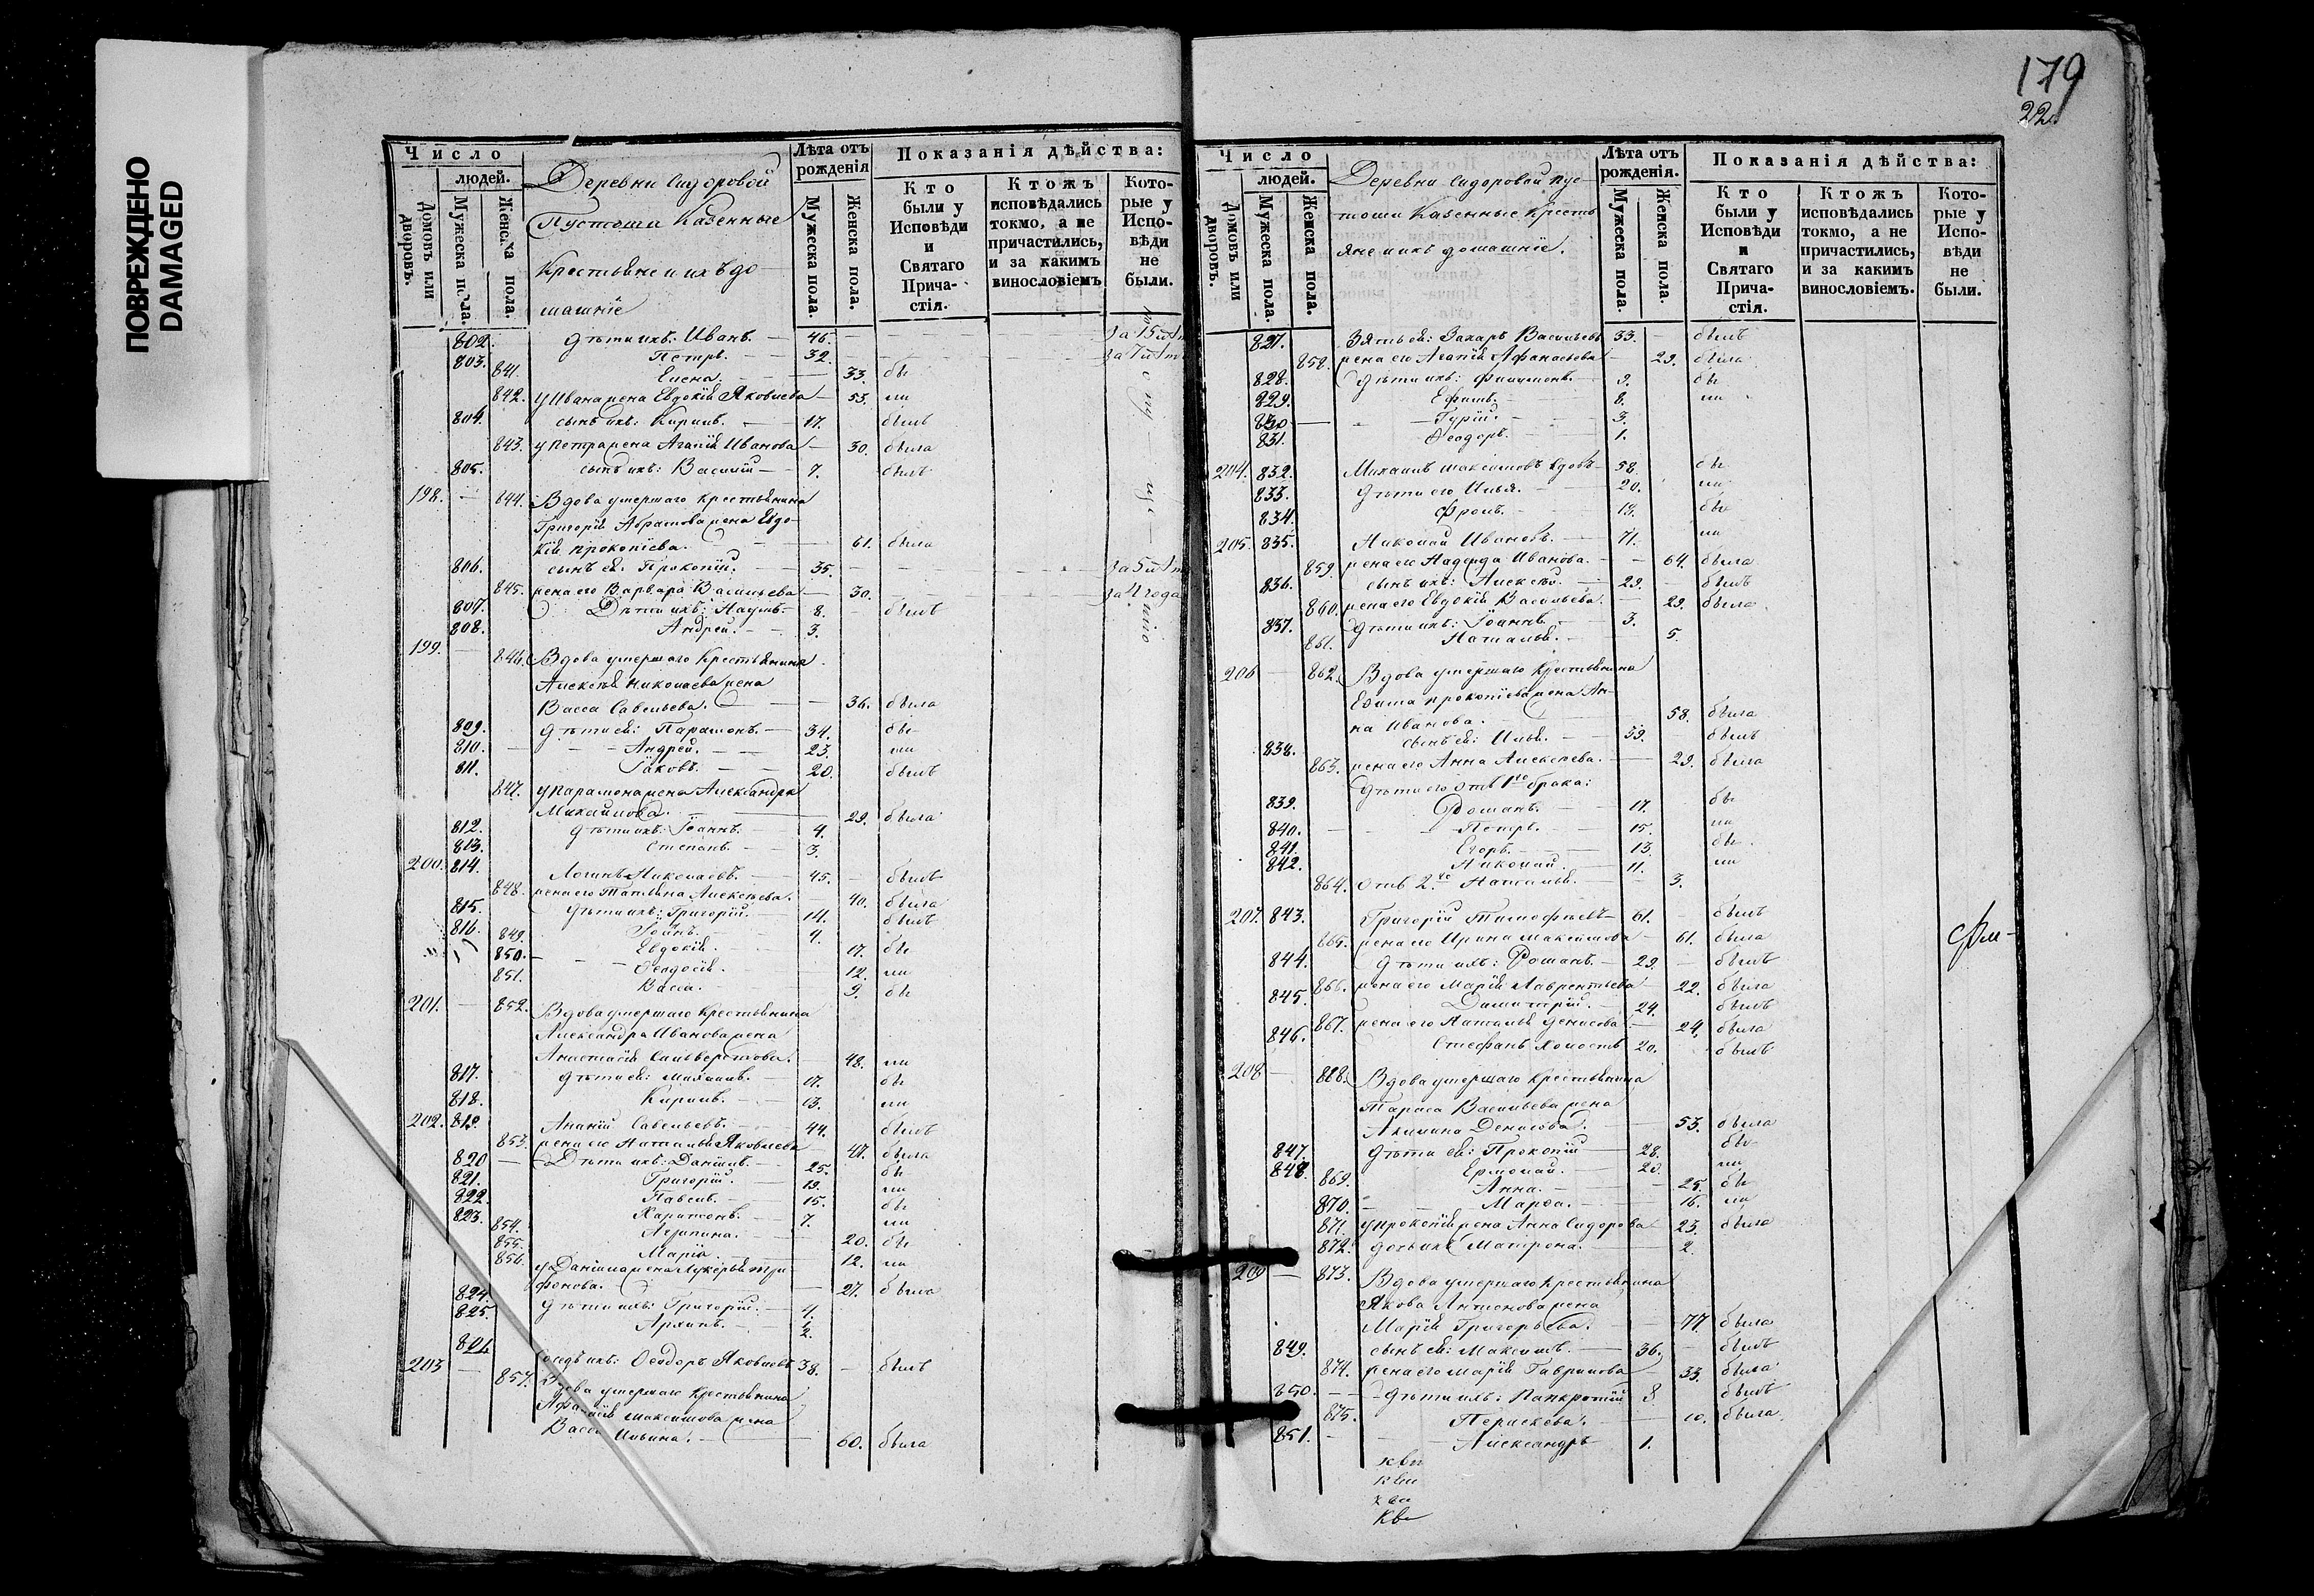 ПОВРЕЖДЕНО
DAMAGED
Число
людей.
Домовъ или дворовъ.
Мужеска пола.
Женска пола.
Деревни Сидоровой
Пустоши Казенные
Крестьяне и ихъ до
машніе
Лѣта отъ рожденія
Мужеска пола.
Женска пола.
Показанія дѣйства:
Кто были у Исповѣди и Святаго Прича-стія.
Ктожъ исповѣдались токмо, а не причастились, и за какимъ винословіемъ
Кото-рые у Испо-вѣди не были.
802. дѣти ихъ: Иванъ. 46. За 15 лѣт
803. Петръ. 32. За 7 лѣт
841. Елена. 33. бы
842. у Ивана жена Евдокія Яковлева 55. ли
804. сынъ ихъ: Кирилъ. 17. былъ
843. у Петра жена Агапія Иванова 30. была
805. сынъ ихъ: Василій 7. былъ
198. 844. Вдова умершаго крестьянина
Григорія Абрамова жена Евдо-
кія Прокопіева. 61. была
806. сынъ ея: Прокопій. 35. За 5 лѣт
845. жена его Варвара Васильева 30. За 4 года
807. Дѣти ихъ: Наумъ 8. былъ
808. Андрей. 3.
199. 846. Вдова умершаго Крестьянина
Алексѣя Николаева жена
Васса Савельева. 36. была
809. дѣти ея: Парамонъ. 34. бы
810. Андрей. 23. ли
811. Іаковъ. 20. былъ
847. у Парамона жена Александра
Михайлова. 29. была
812. дѣти ихъ: Іоаннъ. 4.
813. Степанъ. 3.
200. 814. Логинъ Николаевъ. 45. былъ
848. жена его Татьяна Алексѣева. 40. была
815. дѣти ихъ: Григорій. 14. былъ
816. Іоаннъ. 4.
849. Евдокія. 17. бы
850. Ѳеодосія. 12. ли
851. Васса. 9. бы
201. 852. Вдова умершаго крестьянина
Александра Иванова жена
Анастасія Сильверстова. 48. ли
817. дѣти ея: Михаилъ. 17. бы
818. Кирилъ. 13. ли
202. 819. Ананій Савельевъ. 44. былъ
853. жена его Наталья Яковлева 47. была
820 Дѣти ихъ: Даніилъ. 25. бы
821. Григорій. 19. ли
822. Павелъ. 15. бы
823. Харитонъ. 7. ли
854. Агрипина. 20. бы
855. Марія. 12. ли
856. у Даніила жена Лукерья Три
фонова. 27. была
824. дѣти ихъ: Григорій. 4.
825. Архипъ. 2.
826 Ѳеодоръ Яковлевъ 38. былъ
203 857. Вдова умершаго крестьянина
Максимова жена
Васса Ильина. 60. была
179
22
Число
людей.
Домовъ или дворовъ.
Мужеска пола.
Женска пола.
Деревни Сидоровой Пус-
тоши Казенные Кресть
яне и ихъ домашніе.
Лѣта отъ рожденія.
Мужеска пола.
Женска пола.
Показанія дѣйства:
Кто были у Исповѣди и Святаго Прича-стія.
Ктожъ исповѣдались токмо, а не причастились, и за какимъ винословіемъ.
Кото-рые у Испо-вѣди не были.
827. Зять ея: Захаръ Васильевъ 33. былъ
858. жена его Агапія Афанасьева 29. была
828. дѣти ихъ: Филимонъ. 9. бы
829. Ефимъ. 8. ли
830 Гурій. 3.
831. Ѳеодоръ. 1.
204. 832. Михаилъ Максимовъ вдовъ 58. бы
833. дѣти его Илья. 20. ли
834. Фролъ. 18. бы
205. 835. Николай Ивановъ. 71. ли
859. жена его Надежда Иванова. 64. была
836. сынъ ихъ: Алексѣй. 29. былъ
860. жена его Евдокія Васильева. 29. была
837. дѣти ихъ: Іоаннъ. 3.
861. Наталья. 5.
206 862. Вдова умершаго Крестьянина
Прокопіева жена Ан-
на Иванова. 58. была
838. сынъ ея: Илья. 39. былъ
863. жена его Анна Алексѣева. 29. была
дѣти его отъ 1го брака:
839. Романъ. 17. бы
840. Петръ. 15. ли
841. Егоръ. 13. бы
842. Николай 11. ли
864. отъ 2го Наталья. 3.
207. 843. Григорій Тимофѣевъ 61. былъ
865. жена его Ирина Максимова 61. была
844. дѣти ихъ: Романъ. 29. былъ
866. жена его Марія Лаврентьева 22. была
845. Димитрій. 24. былъ
867. жена его Наталья Денисова 24. была
846. Стефанъ холостъ 20. былъ
208 868. Вдова умершаго Крестьянина
Тараса Васильева жена
Акилина Денисова. 53. была
847. дѣти ея: Прокопій 28. бы
848. Ермолай. 20. ли
869. Анна. 25. бы
870. Марѳа. 16. ли
871. у Прокопія жена Анна Сидорова 23. была
872. дочь ихъ Матрона. 2.
209 873. Вдова умершаго Крестьянина
Якова Антонова жена
Марія Григорьева. 77 была
849. сынъ ея: Максимъ. 36. былъ
874. жена его Марія Гаврилова 33. была
850. дѣти ихъ: Панкратій 8 былъ
875. Перискева. 10. была
851. Александръ 1.